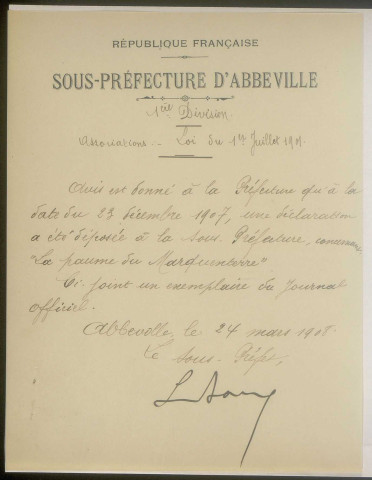 RÉPUBLIQUE FRANÇAISE
SOUS-PRÉFECTURE D'ABBEVILLE
Division.
Associations - Loi du 1er Juillet 1901.
Avis est donné à la Préfecture qu'à la
date du 23 décembre 1907, une déclaration
a été déposée à la Sous-Préfecture, concernant
"La paume du Marquenterre"
Ci-joint un exemplaire du Journal
Officiel.
Abbeville, le 24 mars 1908.
Le Sous-Préfet,